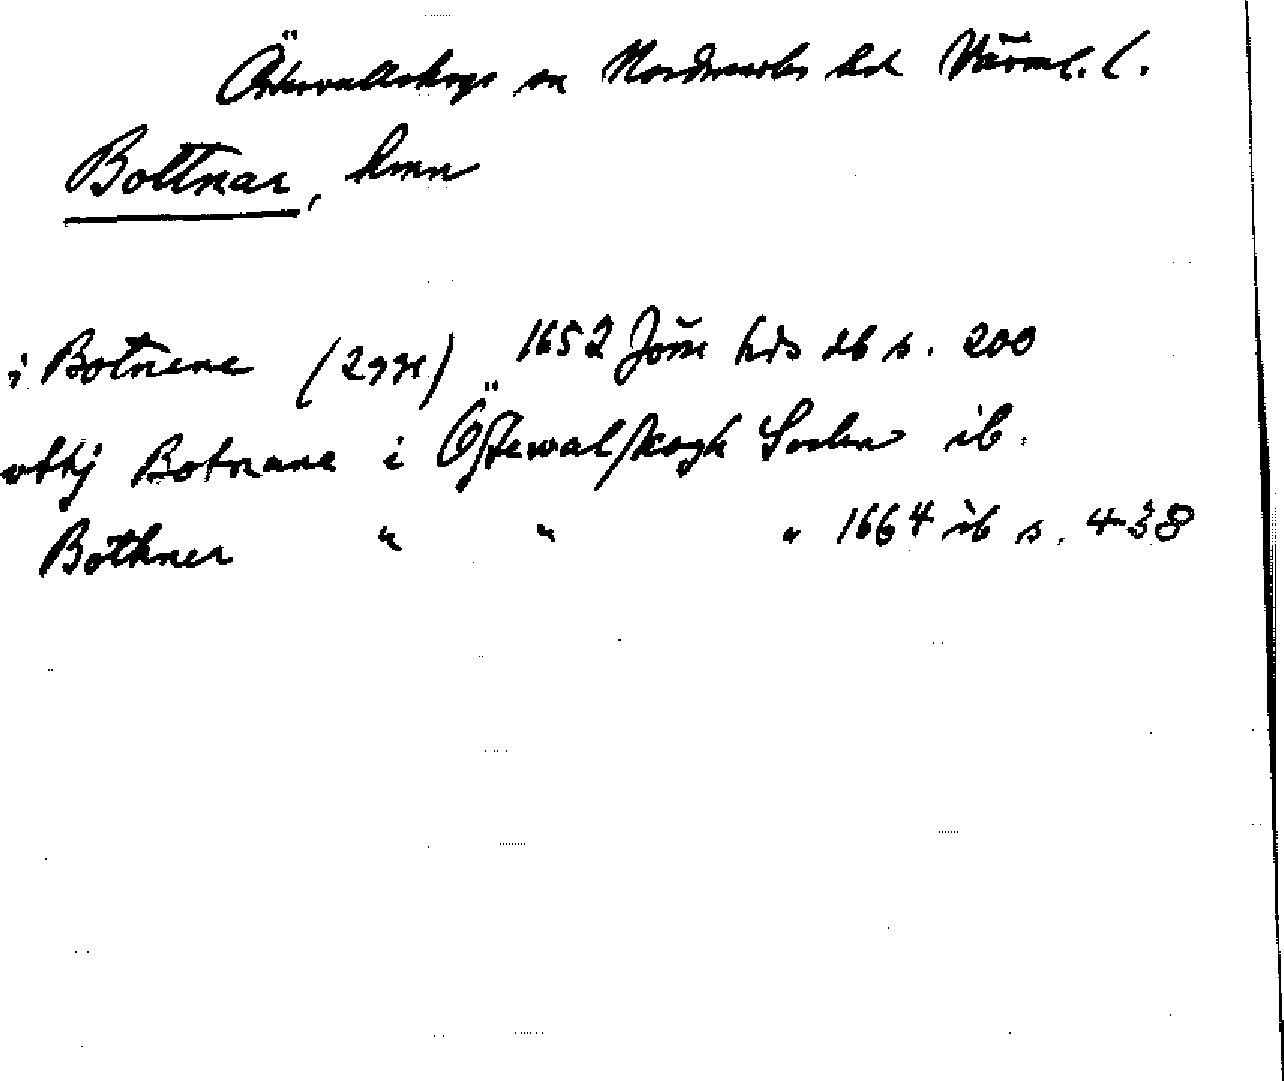 Östervallskogs sn Nordmarks hd Värml. l.
Bottnar, hmn
i Botnene (2 ggr) 1652 Jöse hds db s. 200
vttj Botnane i Östewalskogh Sochn ib.
Bothner " " " 1664 ib s. 438